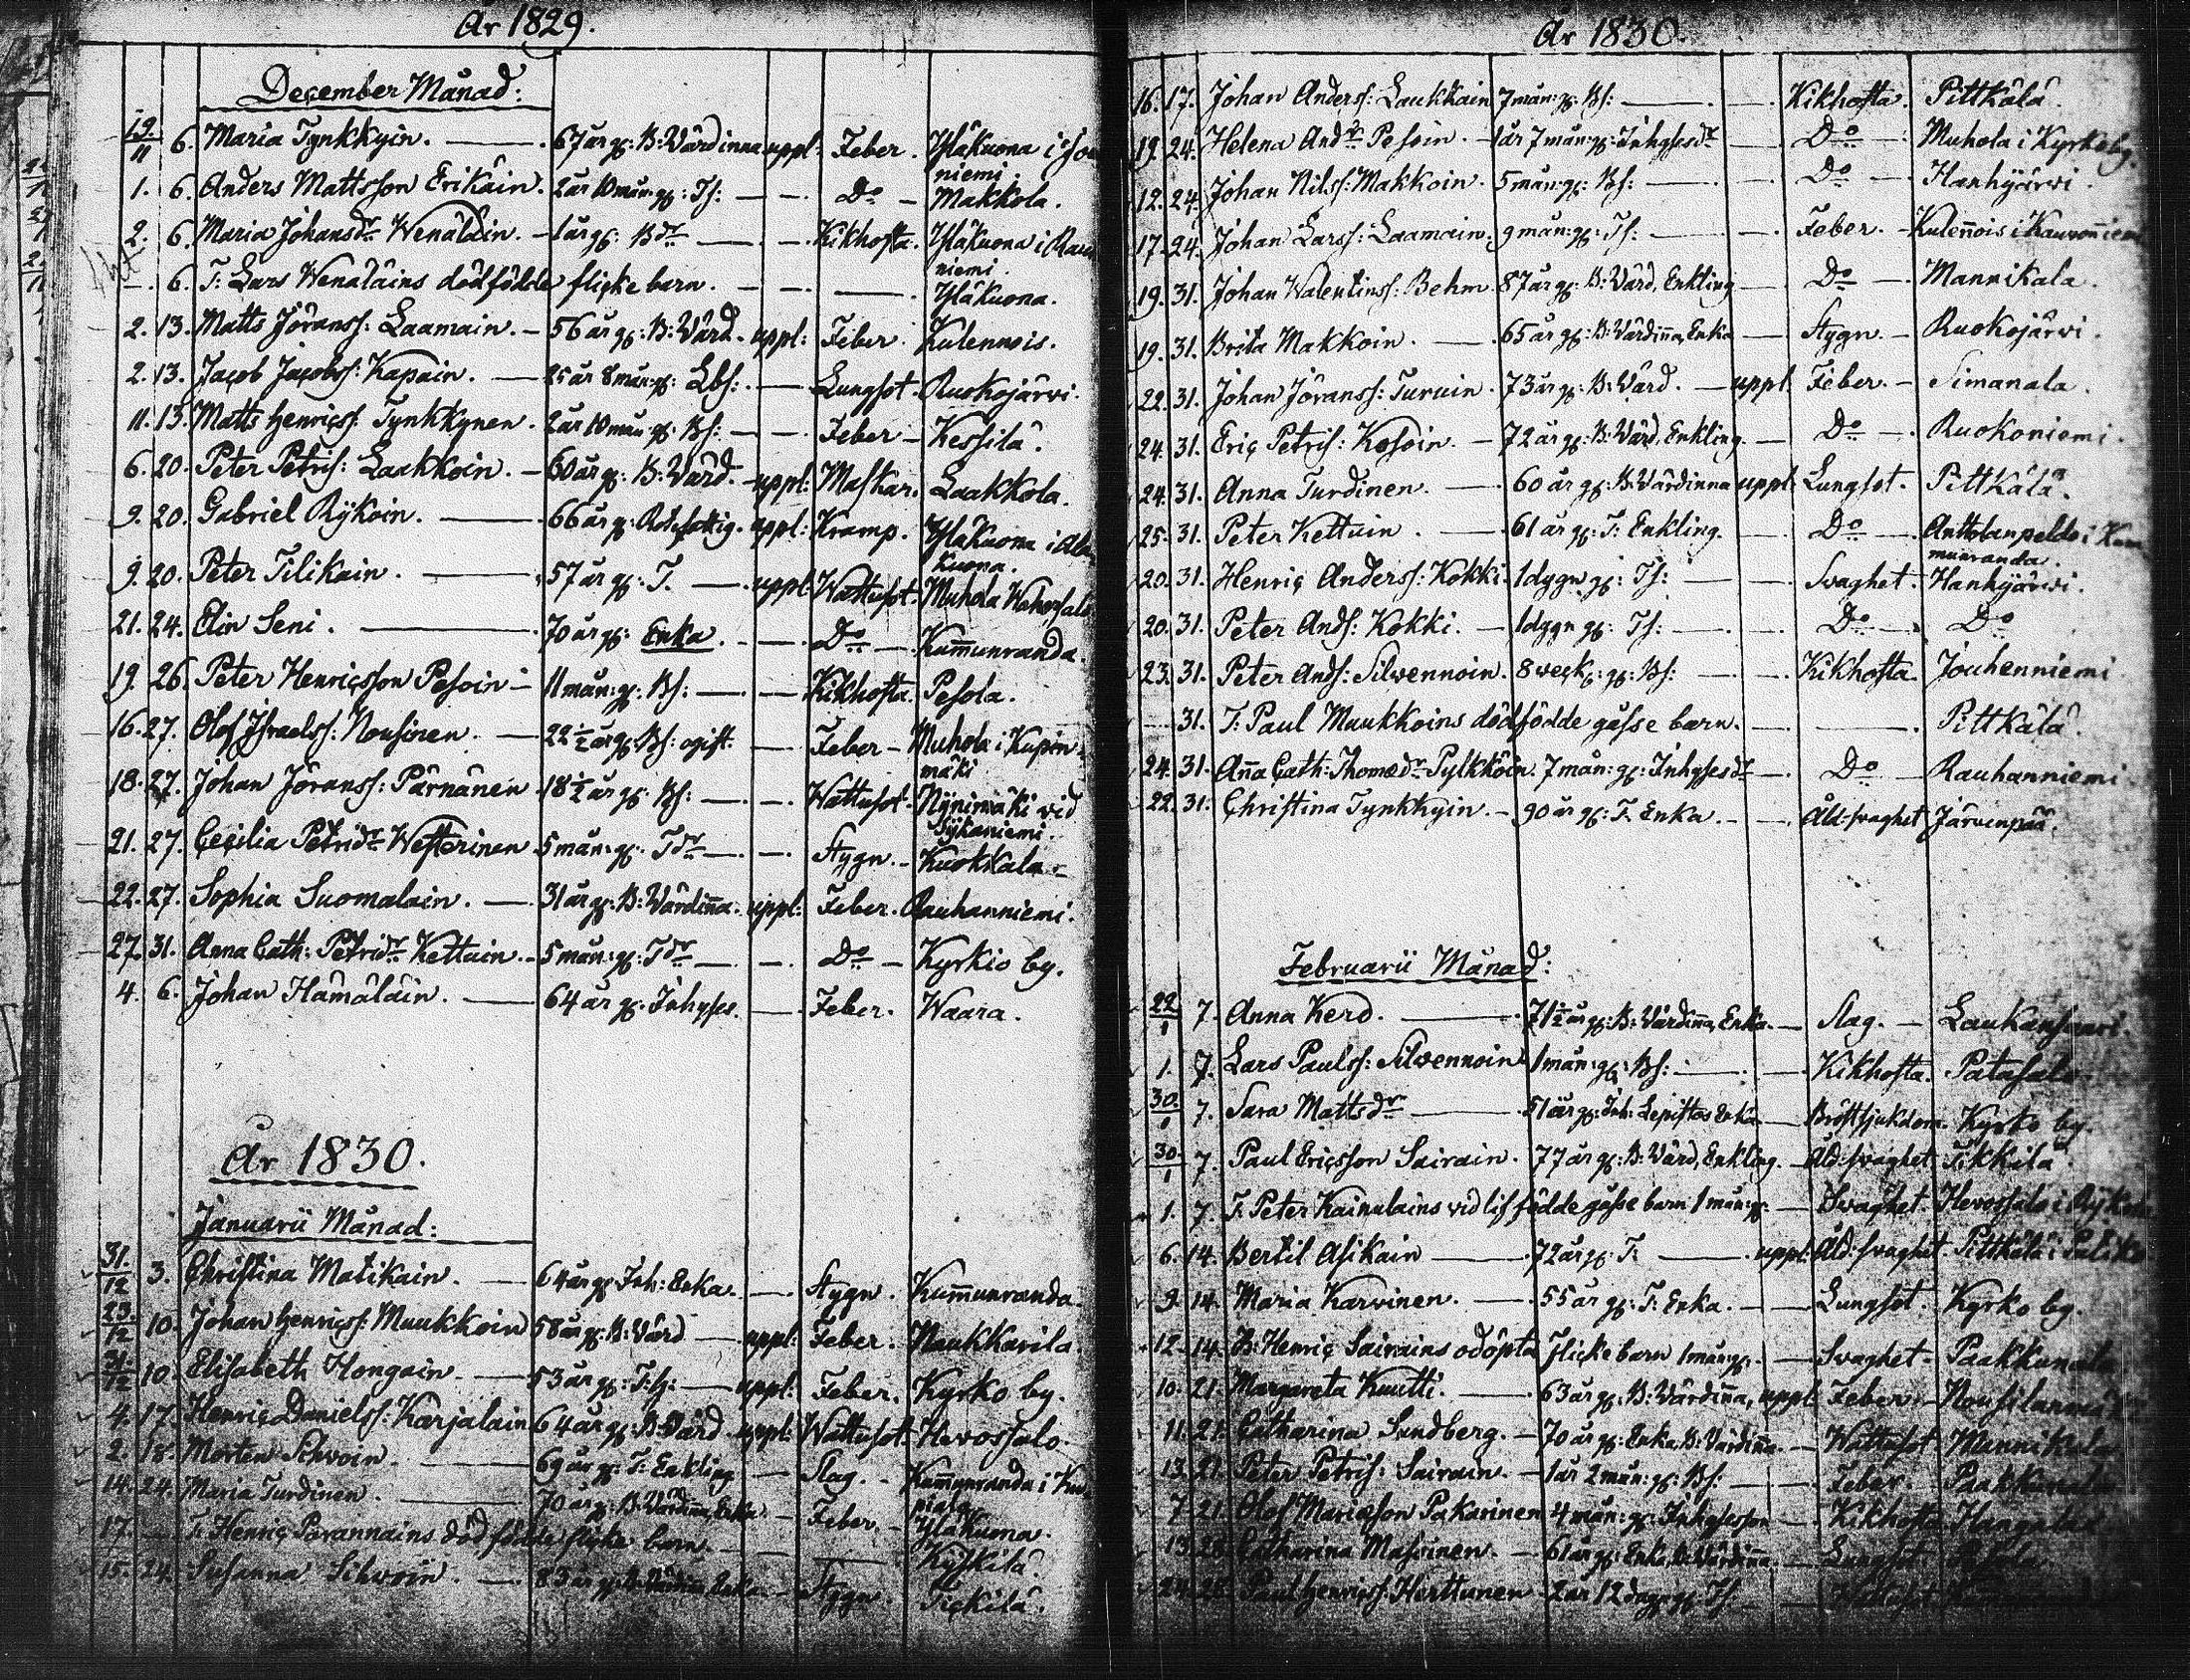 År 1829.
December Månad:
19/11 6. Maria Tynkkyin. 67 år g: B: Värdinna uppl: Feber. Yläkuona i
niemi.
1. 6. Anders Mattsson Erikäin. 2 år 10 mån: g: Ts: Do Makkola.
2. 6. Maria Johansdr Wenäläin. 1 år g: Bdr Kikhosta. Yläkuona i
niemi.
6. T: Lars Wenäläins dödfödde flicke barn. Yläkuona.
2. 13. Matts Jöranss: Laamain. 56 år g: B: Värd. uppl: Feber. Kulennois.
2. 13. Jacob Jacobss: Kapain. 25 år 8 mån: g: Lbs: Lungsot. Ruokojärvi.
11. 13. Matts Henricss: Tynkkynen. 2 år 10 mån: g: Bs: Feber Kessilä.
6. 20. Peter Petris: Laakkoin. 60 år g: B: Värd. uppl: Maskar. Laakkola.
9. 20. Gabriel Rÿköin. 66 år g: Rotefattig. uppl: Kramp. Yläkuona i Ala
kuona.
9. 20. Peter Tilikain. 57 år g: T. uppl: Wattusot. Muhola
21. 24. Elin Seni. 70 år g: Enka. Do Kum̄unranda.
19. 26. Peter Henricsson Pesoin 11 mån: g: Bs: Kikhosta. Pesola.
16. 27. Olof Israelss: Nousinen. 22 1/2 år g: Bs: ogift. Feber Muhola i Kupin
mäki
18. 27. Johan Jöranss: Pärnänen 18 1/2 år g: Bs: Wattusot. Nÿnimäki vid
Sÿkäniemi.
21. 27. Cecilia Petridr Westerinen 5 mån: g: Tdr Stygn. Kuokkala
22. 27. Sophia Suomalain. 31 år g: B: Värdin̄a. uppl: Feber. Rauhanniemi.
27. 31. Anna Cath: Petridr Kettuin. 5 mån: g: Tdr Do Kyrkio by.
4. 6. Johan Hämäläin. 64 år g: Inhyses. Feber. Waara.
År 1830.
Januarii Månad:
31/12 3. Christina Matikain. 64 år g: Inh: Enka. Stygn. Kum̄unranda.
23/12 10. Johan Henricss: Muukkoin 58 år g: B: Värd uppl: Feber. Naukkarila.
31/12 10. Elisabeth Hongain. 53 år g: T: h: uppl: Feber. Kyrko by.
4. 17. Henric Danielss: Karjalain 64 år g: B: Värd. uppl: Wattusot. Hevossalo.
2. 18. Morten Silwoin. 69 år g: T: Enkling Slag. Kum̄unranda i
14. 24. Maria Turdinen. 70 år g: B: Värdin̄a, Enka. Feber Yläkuona.
17. T: Henric Parannains död födde flicke barn. Kÿskilä.
15. 24. Susanna Silwoin. 83 år g: B: Värdin̄a Enka Stygn. Tickilä.
År 1830.
16. 17. Johan Anderss: Laukkain 7 mån: g: Bs: Kikhosta. Pittkälä.
19. 24. Helena Andr Pesoin. 1 år 7 mån: g: Inhysesdr Do Muhola i Kyrkoby.
12. 24. Johan Nilss: Makkoin. 5 mån: g: Bs: Do Hanhijärvi.
17. 24. Johan Larss: Laamain. 9 mån: g: Ts: Feber. Kulen̄ois i
19. 31. Johan Walentinss: Behm. 87 år g: B: Värd, Enkling Do Mannikala.
19. 31. Brita Makkoin. 65 år g: B: Värdin̄a, Enka Stygn. Ruokojärvi.
22. 31. Johan Jöranss: Turuin. 73 år g: B: Värd. uppl. Feber. Simanala.
24. 31. Eric Petris: Kosoin. 72 år g: B: Värd, Enkling. Do Ruokoniemi.
24. 31. Anna Turdinen. 60 år g: B: Värdinna uppl. Lungsot. Pittkälä.
25. 31. Peter Kettuin. 61 år g: T: Enkling. Do Anttolanpeldo i Kum
munranda.
20. 31. Henric Anderss: Kokki. 1 dygn g: Ts: Svaghet. Hanhijärvi.
20. 31. Peter Ands: Kokki. 1 dygn g: Ts: Do Do
23. 31. Peter Ands: Silvennoin. 8 weck: g: Bs: Kikhosta. Jouhenniemi
31. T: Paul Muukkoins dödfödde gåsse barn. Pittkälä.
24. 31. An̄a Cath: Thomædr Pylkköin. 7 mån: g: Inhysesdr Do Rauhanniemi
22. 31. Christina Tynkkyin. 90 år g: T: Enka. Åld. svaghet Järvenpää.
Februarii Månad:
22/1 7. Anna Kerd. 71 1/2 år g: B: Värdin̄a, Enka. Slag. Laukansaari.
1. 7. Lars Paulss: Silvennoin 1 mån: g: Bs: Kikhosta. Patasalo
30/1 7. Sara Mattsdr 51 år g: Inh: Lepistös Enka Bröstsjukdom. Kyrko by.
30/1 7. Paul Ericsson Sairain. 77 år g: B: Värd, Enkling. Åld. svaghet Tikkilä.
1. 7. T: Peter Kainulains vid lif födde gåsse barn 1 mån: g: Svaghet. Hevossalo i
6. 14. Bertil Asikain 72 år g: T: uppl: Åld. svaghet. Pittkälä i
9. 14. Maria Karvinen. 55 år g: T: Enka. Lungsot. Kyrko by.
12. 14. B: Henric Sairains odöpta flicke barn 1 mån: g: Svaghet. Paakkunala
10. 21. Margareta Kuutti. 63 år g: B: Värdin̄a, uppl. Feber.
11. 21. Catharina Sundberg. 70 år g: Enka, B: Värdin̄a. Wattusot. Mannikala
13. 21. Peter Petris: Sairain. 1 år 2 mån: g: Bs: Feber. Paakkunala
7. 21. Olof Mariæson Pakarinen 4 mån: g: Inhysesson Kikhosta
13. 28. Catharina Masuinen. 61 år g: Enka, B: Värdin̄a Lungsot.
24. 28. Paul Henricss: Herttunen 2 år 12 dygn g: Ts Wattusot